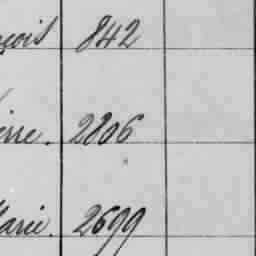 çois 842
erre. 2806
Marie. 2699